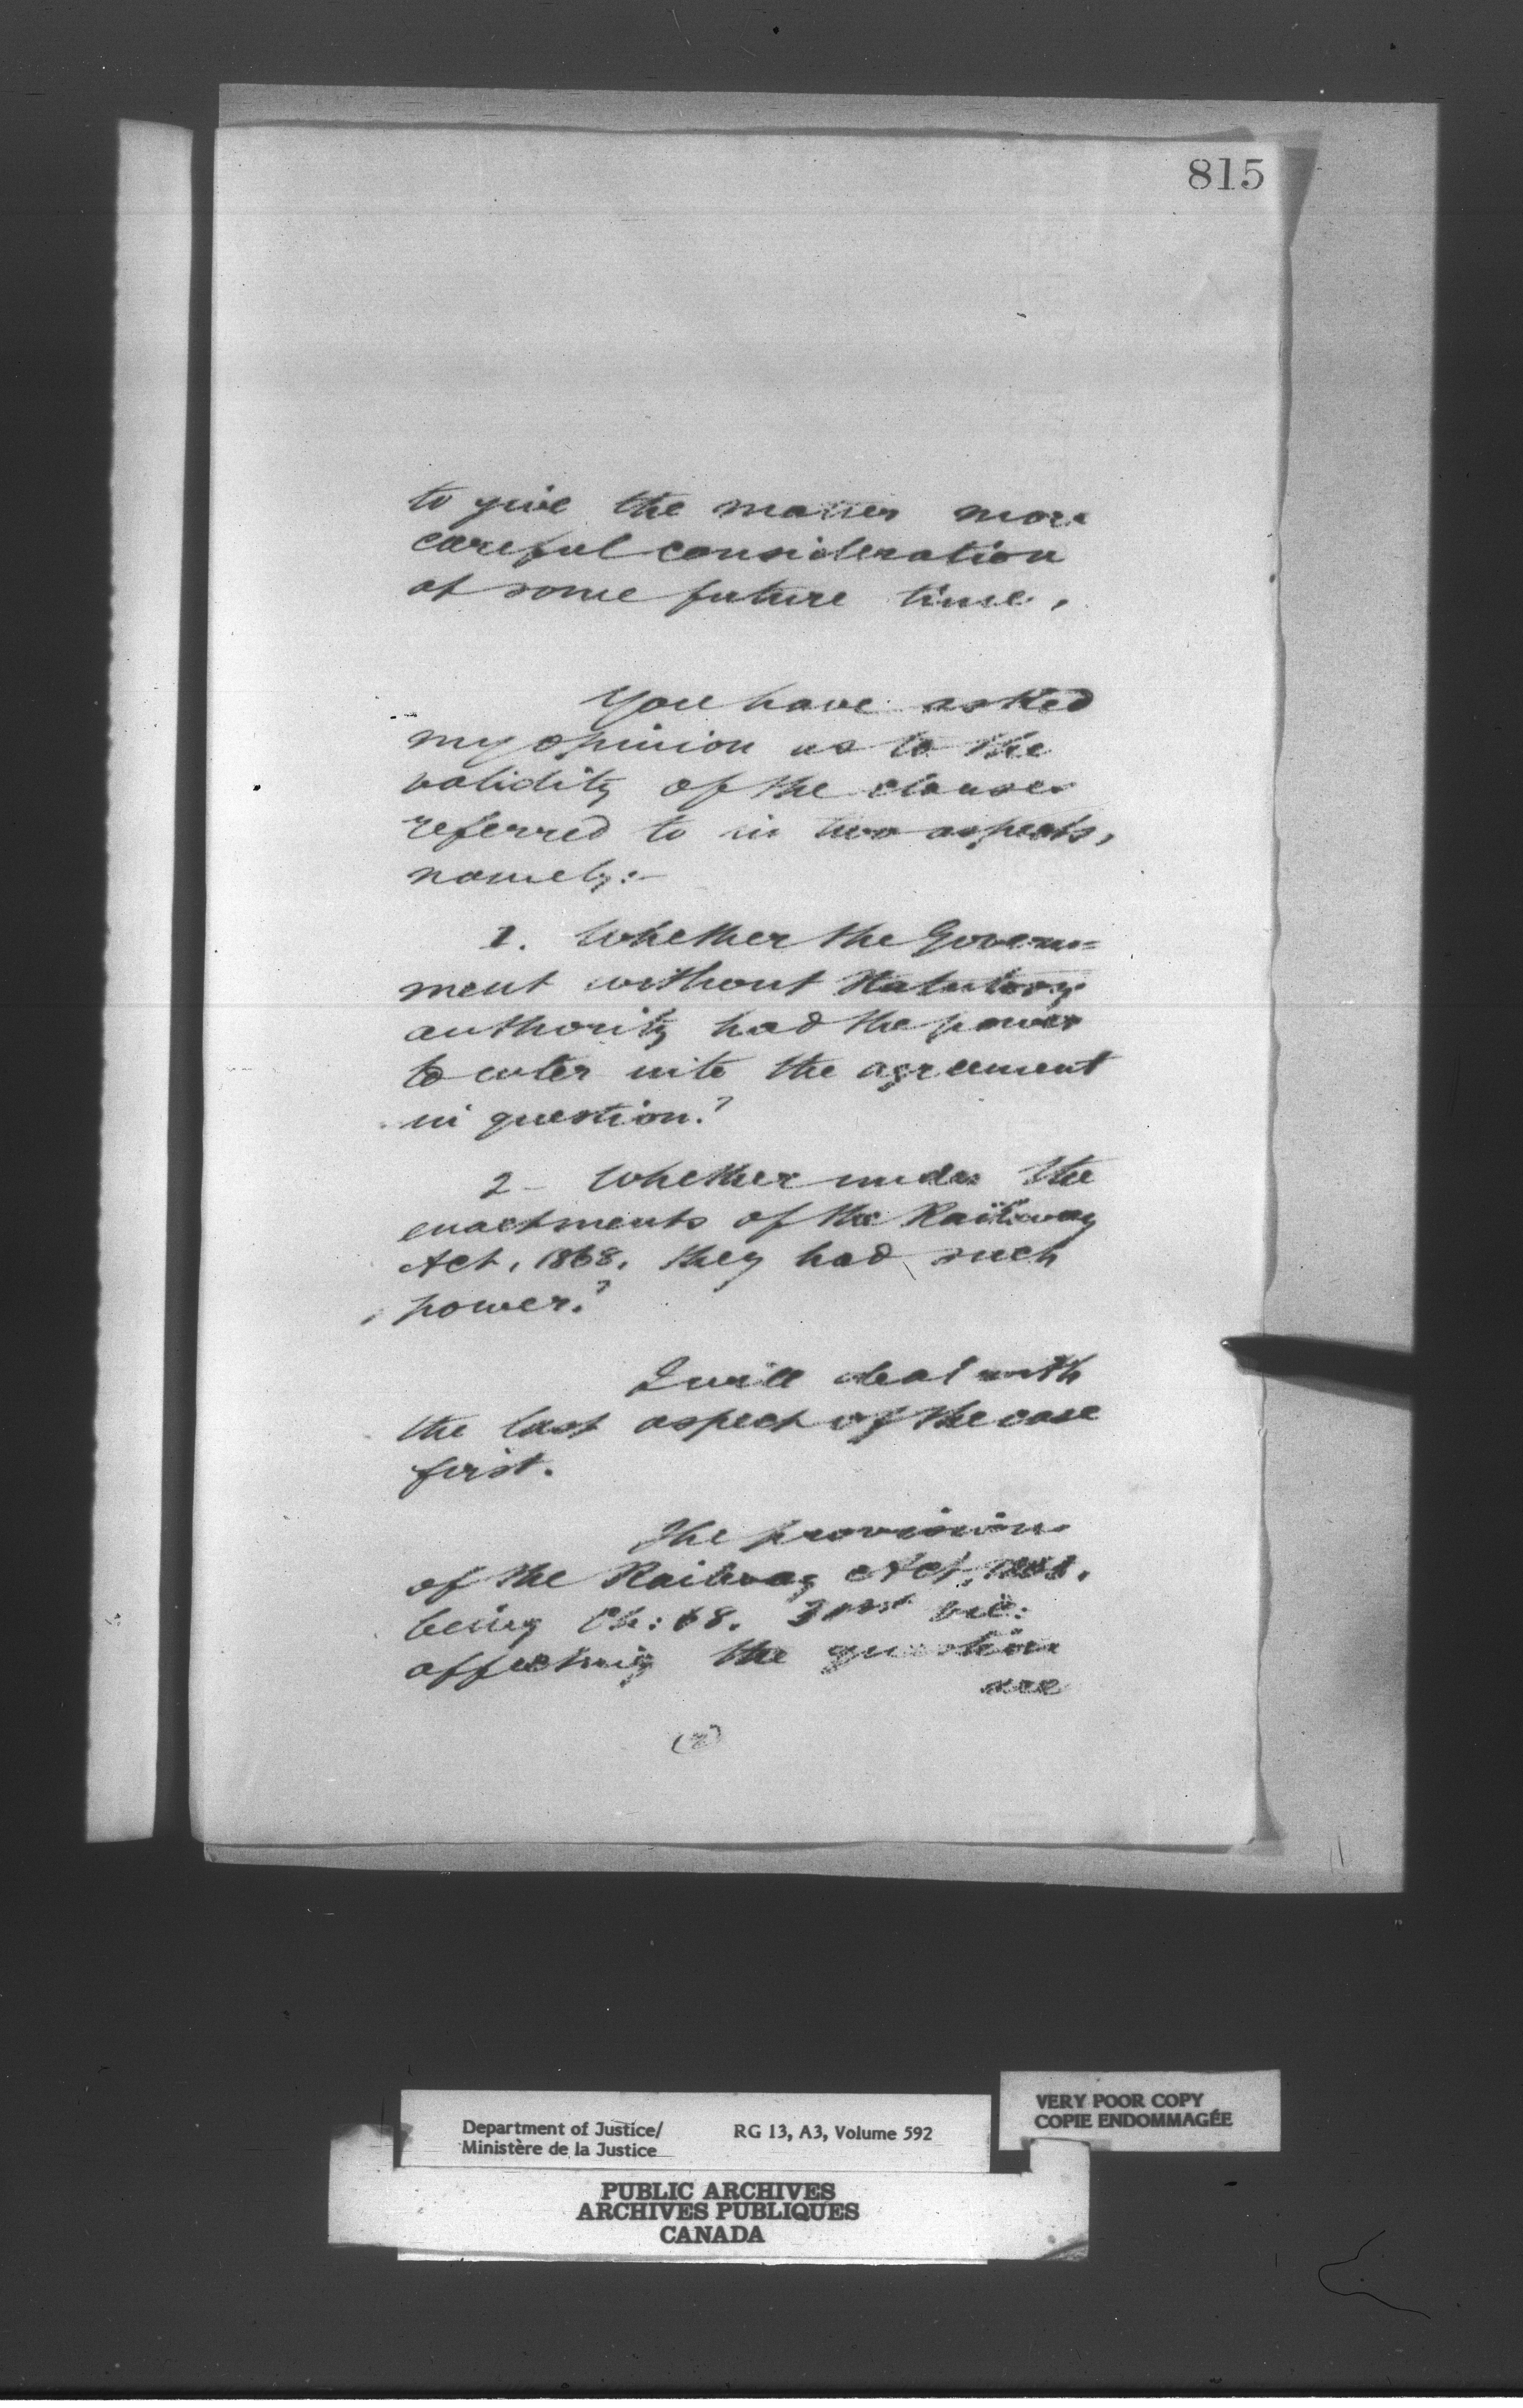 815
to give the matter more
careful consideration
at some future time.
You have asked
my opinion as to the
validity of the clauses
referred to in two aspects,
namely:-
1. Whether the Govern=
ment without Statutory
authority had the power
to enter into the agreement
in question?
2- Whether under the
enactments of the Railway
Act, 1868, they had such
power?
I will deal with
the last aspect of the case
first.
The provisions
of the Railway Act, 1868,
being Ch: 68. 31st Vic:
affecting the question
(2)
Department of Justice/
Ministère de la Justice
RG 13, A3, Volume 592
VERY POOR COPY
COPIE ENDOMMAGÉE
PUBLIC ARCHIVES
ARCHIVES PUBLIQUES
CANADA